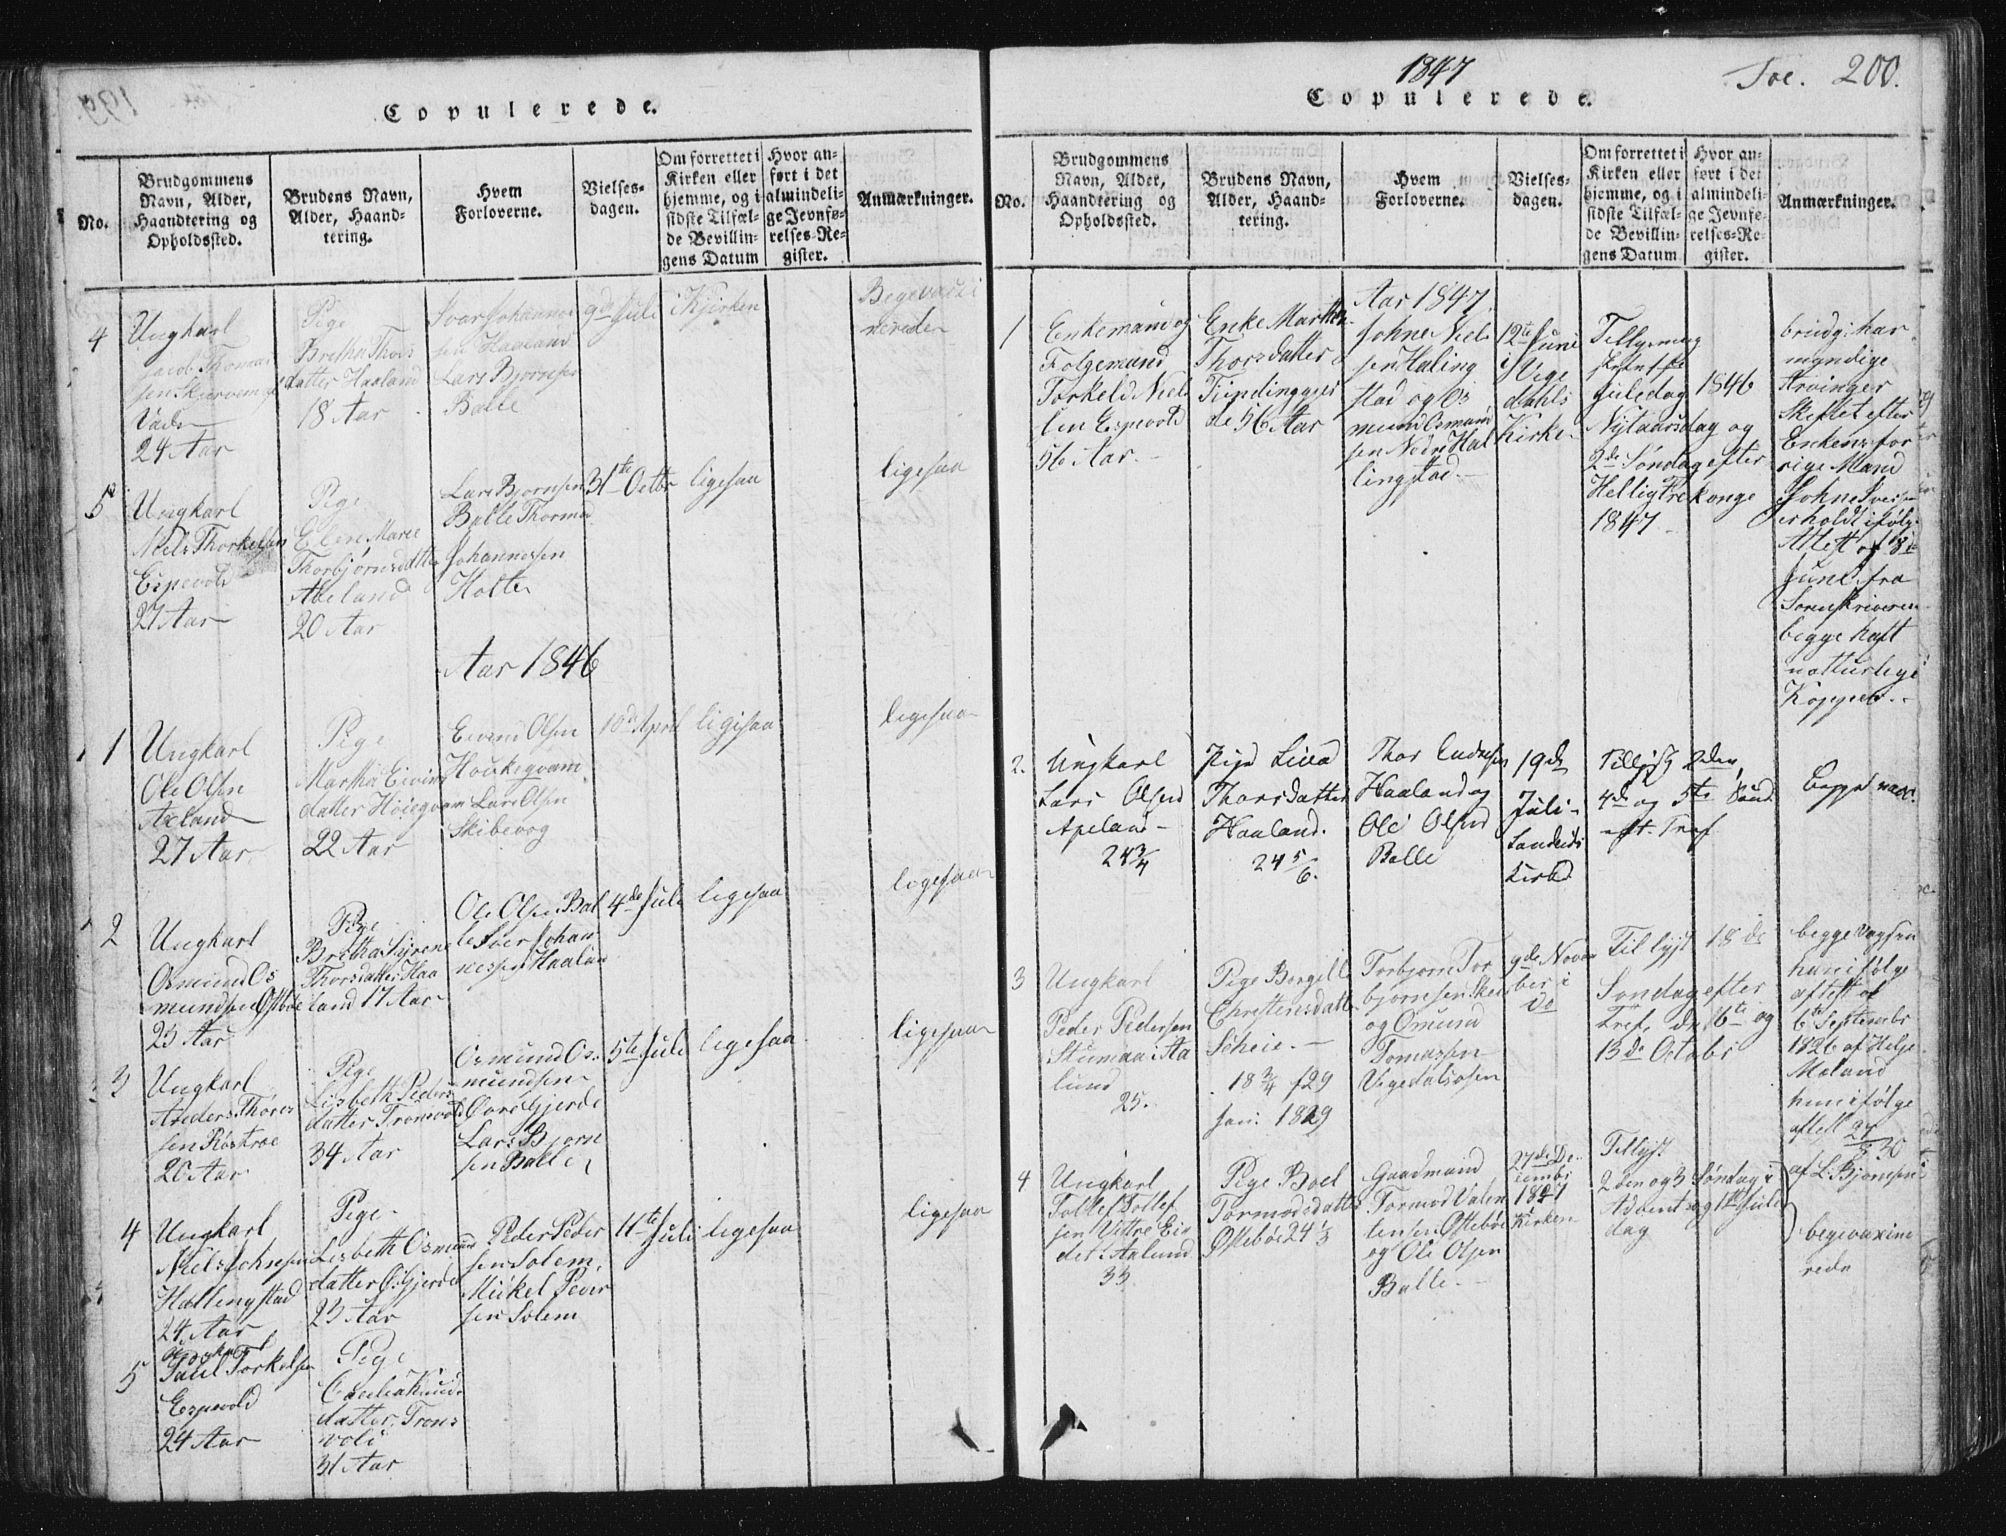 Copulerede.
No.
Brudgommens
Navn, Alder,
Haandtering og
Opholdssted.
Brudens Navn,
Alder, Haand-
tering.
Hvem
Forloverne.
Vielses-
dagen.
Om forrettet i
Kirken eller
hjemme, og i
sidste Tilfæl-
de Bevillin-
gens Datum
Hvor an-
ført i det
almindeli-
ge Jevnfø-
relses-Re-
gister.
Anmærkninger.
4
Ungkarl
Jacob Thomas
sen
24 Aar
Pige
Bretha Thors
datter Haaland
18 Aar
Svar Johannes
sen Haaland
Lars Bjørnsen
Balle
9de Juli
i Kjirken
Begevacsi
nerede
5
Ungkarl
Niels Thorkelsen
Espevold
27 Aar
Pige
Elen Marie
Thorbjørnsdatter
Abeland
20 Aar
Lars Bjørnsen
Balle Thormo
Johannessen
Holte
31te Octbr
ligesaa
ligesaa
Aar 1846
1
Ungkarl
Ole Olsen
Axland
27 Aar
Pige
Martha Eivins
datter Høiegvam
22 Aar
Eivind Olsen
Houkegvam
Lars Olsen
Skibevog
10de April
ligesaa
ligesaa
2
Ungkarl
Osmund Os
mundsen Østbøe
23 Aar
Pige
Bretha Syrene
Thorsdatter Haa
land 17 Aar
Ole Olsen Bal
le Sver Johan
nessen Haalan
4de Juli
ligesaa
ligesaa
3
Ungkarl
Anders Thores
sen Røstroe
26 Aar
Pige
Lisbeth Peders
datter Tronsvold
34 Aar
Osmund Os.
mundsen
Øvre Gjerde
Lars Bjørn
sen Balle
5te Juli
ligesaa
ligesaa
4
Ungkarl
Niels Johnsen
Hallingstad
24 Aar
Pige
Lisbeth Osmun
datter Ø. Gjerde
23 Aar
Peder Peder
sen Solem,
Mickel Peder
sen Solem
11te Juli
ligesaa
ligesaa
5
Ungkarl
Paul Torkelsen
Espevold
24 Aar
Pige
Cecilia Knuds
datter Trons
vold
31 Aar
1847
Copulerede.
Foe. 200.
No.
Brudgommens
Navn, Alder,
Haandtering og
Opholdssted.
Brudens Navn,
Alder, Haand-
tering.
Hvem
Forloverne.
Vielses-
dagen.
Om forrettet i
Kirken eller
hjemme, og i
sidste Tilfæl-
de Bevillin-
gens Datum
Hvor an-
ført i det
almindeli-
ge Jevnfø-
relses-Re-
gister.
Anmærkninger.
Aar 1847
1
Enkemand og
Folgemand
Torkeld Niel
sen Espevold
56 Aar.
Enke Marthe
Thorsdatter
de 56 Aar
Johne Niel
sen Haling
stad og Os
mund Osmund
sen Nedre Hal
lingstad.
12te Juni
i Vige
dahls
Kirke
Tillysning
Juledag 1846
Nytaarsdag og
2de Søndag efter
Hellig Tre konge
1847
brudg: har
myndige
Arvinger
Skiftet efter
Enkens for
rige Mand
Johne
erholdt ifølge
Attest af 18de
Juni fra
Sorenskriveren
begge haft
naturlige
Kopper.
2.
Ungkarl
Lars Olsen
Apeland
24 3/4
Pige Lisa
Thorsdatter
Haaland.
24 5/6.
Thor Endresen
Haaland og
Ole Olsen
Balle
19de
Juli
Sandeids
Kirke
Tillyst 3den,
4de og 5te Sønd.
eft. Tref
Begge vacc.
3
Ungkarl
Peder Pedersen
Stumaa i Aa
lund
25.
Pige Borgille
Christensdatter
Scheie.
18 3/4 f 29
Jan. 1829
Torbjørn Tor
bjørnsen Skei
og Omund
Tomassen
Vigedalsosen
9de Novem
ber i
do
Til lyst 18de
Søndag efter
Tref. den 6te og
13de Octobr
begge Vagsen
han ifølge
aftest af
6te Septembr
1826 af Helje
Moland
hun ifølge
aftest 24/8 30
af L. Bjørnsen
4
Ungkarl
Tollef Tollef
sen Vettre Eie
det i Aalund
33
Pige Boel
Tormodsdatter
Østebøe 24 1/3
Gaardmand
Tormod Valen
tensen Østebøe
og Ole Olsen
Balle.
27de De
cembr
1847
Kirken
Tillyst
2den og 3 Søndag i
Advent og 1te Jule
dag
begevaxine
rede